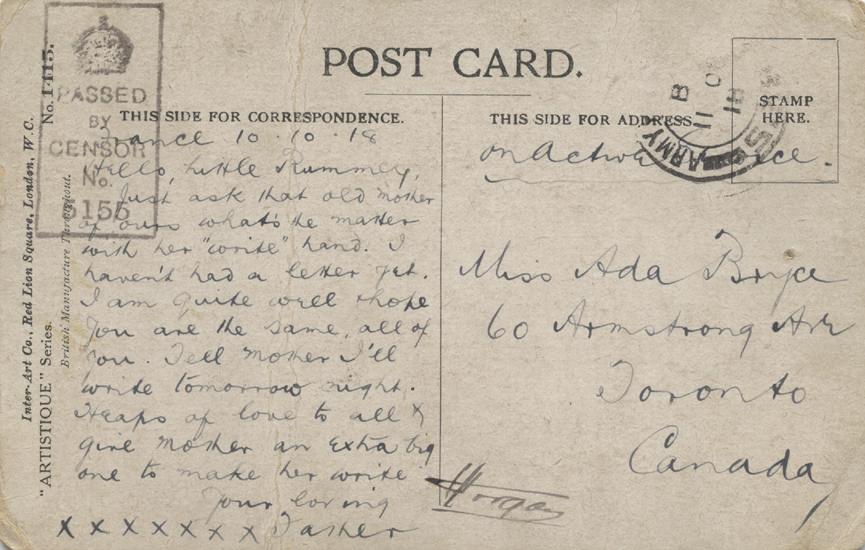 POST CARD.
PASSED
BY
CENSOR
No.
5155
THIS SIDE FOR CORRESPONDENCE.
France 10.10.18
Hello, little Rummey,
Just ask that old mother
of ours what's the matter
with her "write" hand. I
haven't had a letter yet.
I am quite well & hope
you are the same, all of
you. Tell Mother I'll
write tomorrow night.
Heaps of love to all &
give Mother an Extra big
one to make her write
Your loving
x x x x x x x x Father
THIS SIDE FOR ADDRESS.
STAMP
HERE.
ARMY
B
11 O
18
on Active Service.
Miss Ada Bryce
60 Armstrong Ave
Toronto
Canada
Inter-Art Co., Red Lion Square, London, W.C.
"ARTISTIQUE" Series.
No. 1415.
British Manufacture Throughout.